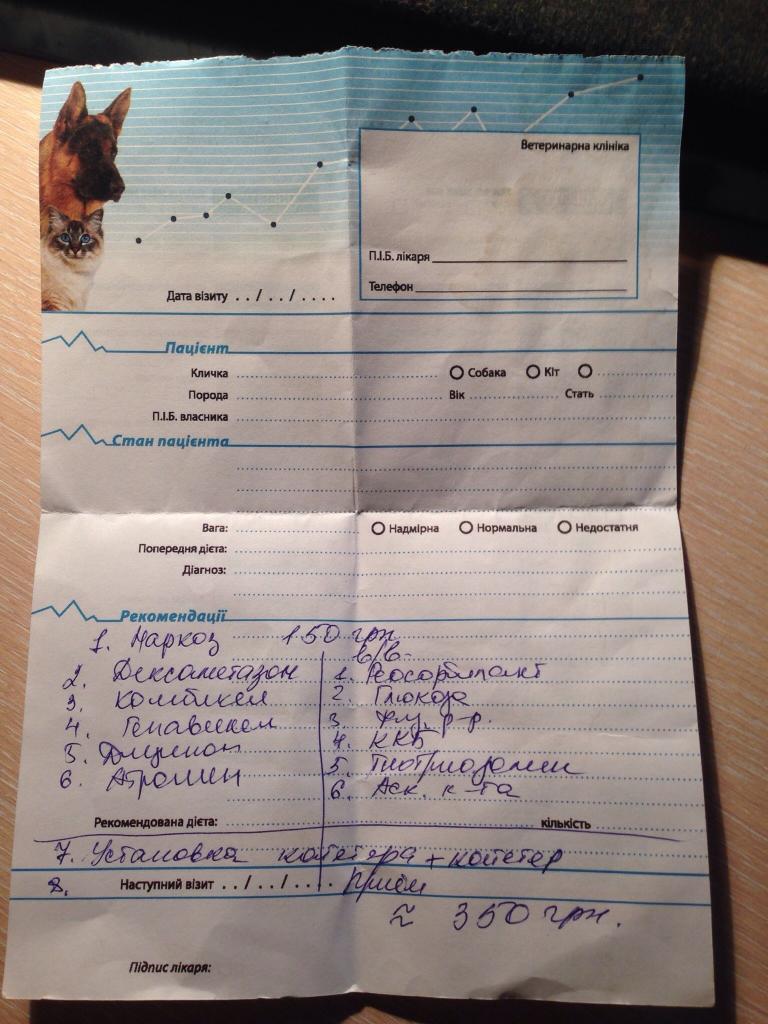 Ветеринарна клініка
П.І.Б. лікаря
Телефон
Дата візиту ../../....
Пацієнт
Кличка Собака Кіт
Порода Вік Стать
П.І.Б. власника
Стан пацієнта
Вага: Надмірна Нормальна Недостатня
Попередня дієта:
Діагноз:
Рекомендації
1. Наркоз 150 грн
в/в.
2. Дексаметазон
3. Комбикел
4. Гепавикел
5. Дицинон
6. Атропин
1. Реосорбилакт
2. Глюкоза
3. Физ. р-р.
4. ККБ
5. Тиотриазолин
6. Аск. к-та
Рекомендована дієта: кількість
7. Установка катетера + катетер
8. Наступний візит ../../.... Приём
≈ 350 грн.
Підпис лікаря: